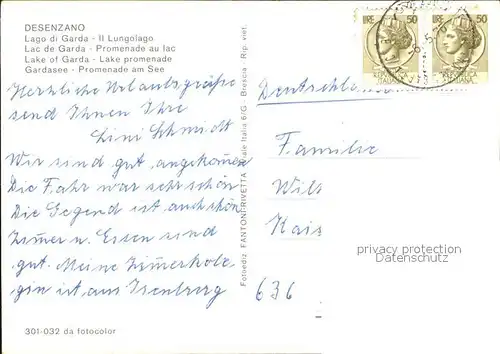 DESENZANO
Lago di Garda - Il Lungolago
Lac de Garda - Promenade au lac
Lake of Garda - Lake promenade
Gardasee - Promenade am See
Herzliche Urlaubsgrüße
send Ihnen Ihre
Lini Schmidt
Wir sind gut angekom̄en
Die Fahr war sehr schön
Die Gegend ist auch schön
Zim̄er u. Essen sind
gut. Meine Zim̄erkole,
gin ist aus Isenberg
301-032 da fotocolor
Fotoediz. FANTONI-RIVETTA ale Italia 6/G - Brescia Rip. viet.
LIRE 50
LIRE 50
Deutschland
Familie
Wil
Kais
636
privacy protection
Datenschutz